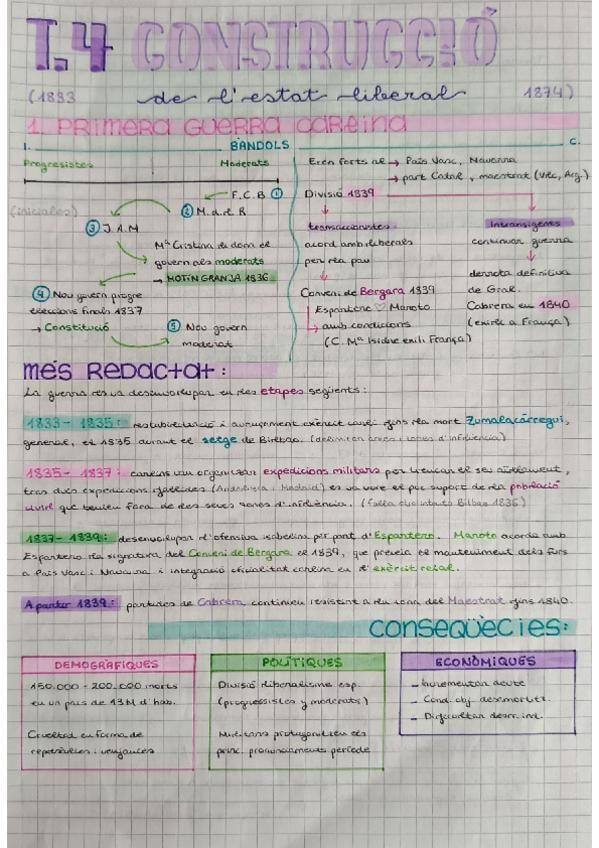 T.4 CONSTRUCCIÓ
(1833 de l'estat liberal 1874)
1. PRIMERA GUERRA CARLINA
I. BÀNDOLS C.
Progresistes Moderats
F.C.B ①
(inicials) ② M. d. l. R
③ J.A.M
Mª Cristina li dona el
govern als moderats
→ MOTIN GRANJA 1836
④ Nou govern progre
eleccions finals 1837
→ Constitució
⑤ Nou govern
moderat
Eren forts al → País Vasc, Navarra
→ part Catal, maestrat (Vlc, Arg.)
Divisió 1839
transaccionistes
acord amb liberals
per la pau
Conveni de Bergara 1839
Espartero ♡ Maroto
amb condicions
(C. Mª Isidre exili França)
Intransigents
continuar guerra
derrota definitiva
de Gral.
Cabrera en 1840
(exili a França)
més redactat:
La guerra es va desenvolupar en les etapes següents:
1833 - 1835: i exèrcit carlí fins la mort Zumalacárregui,
general, el 1835 durant el setge de Bilbao.
1835 - 1837: carlins van organitzar expedicions militars per trencar el seu aïllament,
tras dues expedicions fallides (Andalusia i Madrid) es va veure el poc suport de la població
civil que tenien fora de les seues zones d'influència. (falla Bilbao 1836)
1837 - 1839: desenvolupar l'ofensiva isabelina per part d'Espartero. Maroto acorda amb
Espartero la signatura del Conveni de Bergara el 1839, que preveia el manteniment dels furs
a País Vasc i Navarra i integració oficialitat carlina en l'exèrcit reial.
A partir 1839: partides de Cabrera continuen resistint a la zona del Maestrat fins 1840.
conseqüècies:
DEMOGRÀFIQUES
150.000 - 200.000 morts
en un país de 13M d'hab.
Crueltat en forma de
represàlies i venjances
POLÍTIQUES
Divisió liberalisme esp.
(progressistes y moderats)
Militars protagonitzen els
princ. pronunciaments període
ECONÒMIQUES
- Incrementar deute
- Cond. obj. desmortit.
- Dificultar desen. ind.